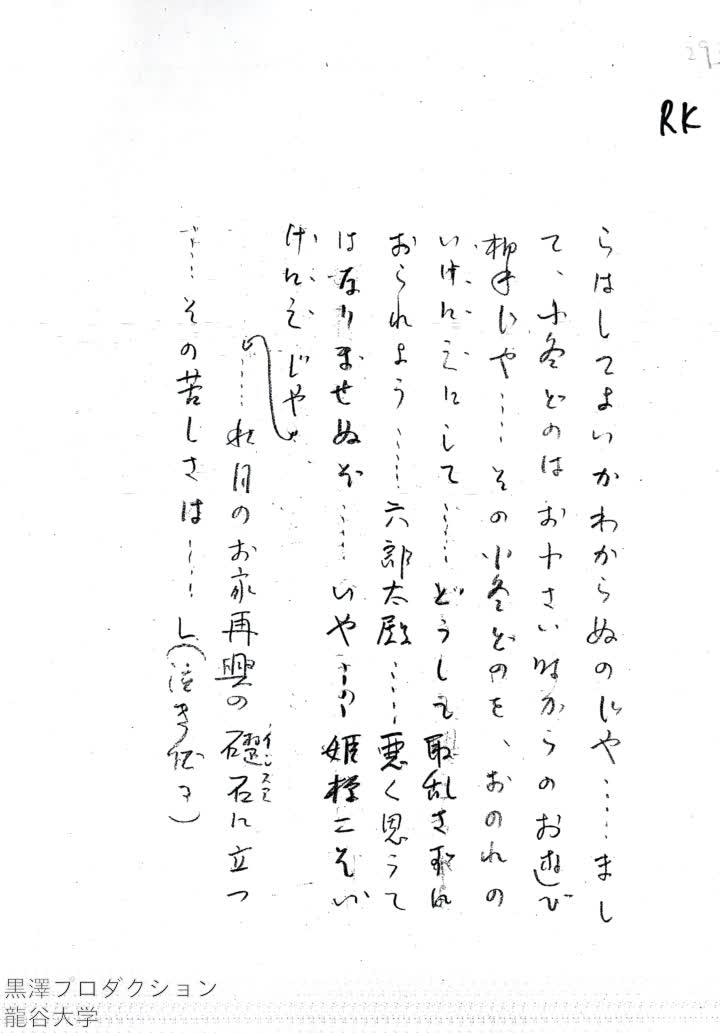 RK
らはしてよいかわからぬのじや……まし
て、小冬どのはおサさい時からのお遊び
相手じや……その小冬どのを、おのれの
いけにえにして……どうしても取乱さずに
おられよう……六郎太殿……悪く思うて
はなりませぬぞ……いや……姫様こそい
けにえじや
……秋月のお家再興の礎石に立つ
イシズエ
……その苦しさは……」(泣き伏す)
黒澤プロダクション
龍谷大学